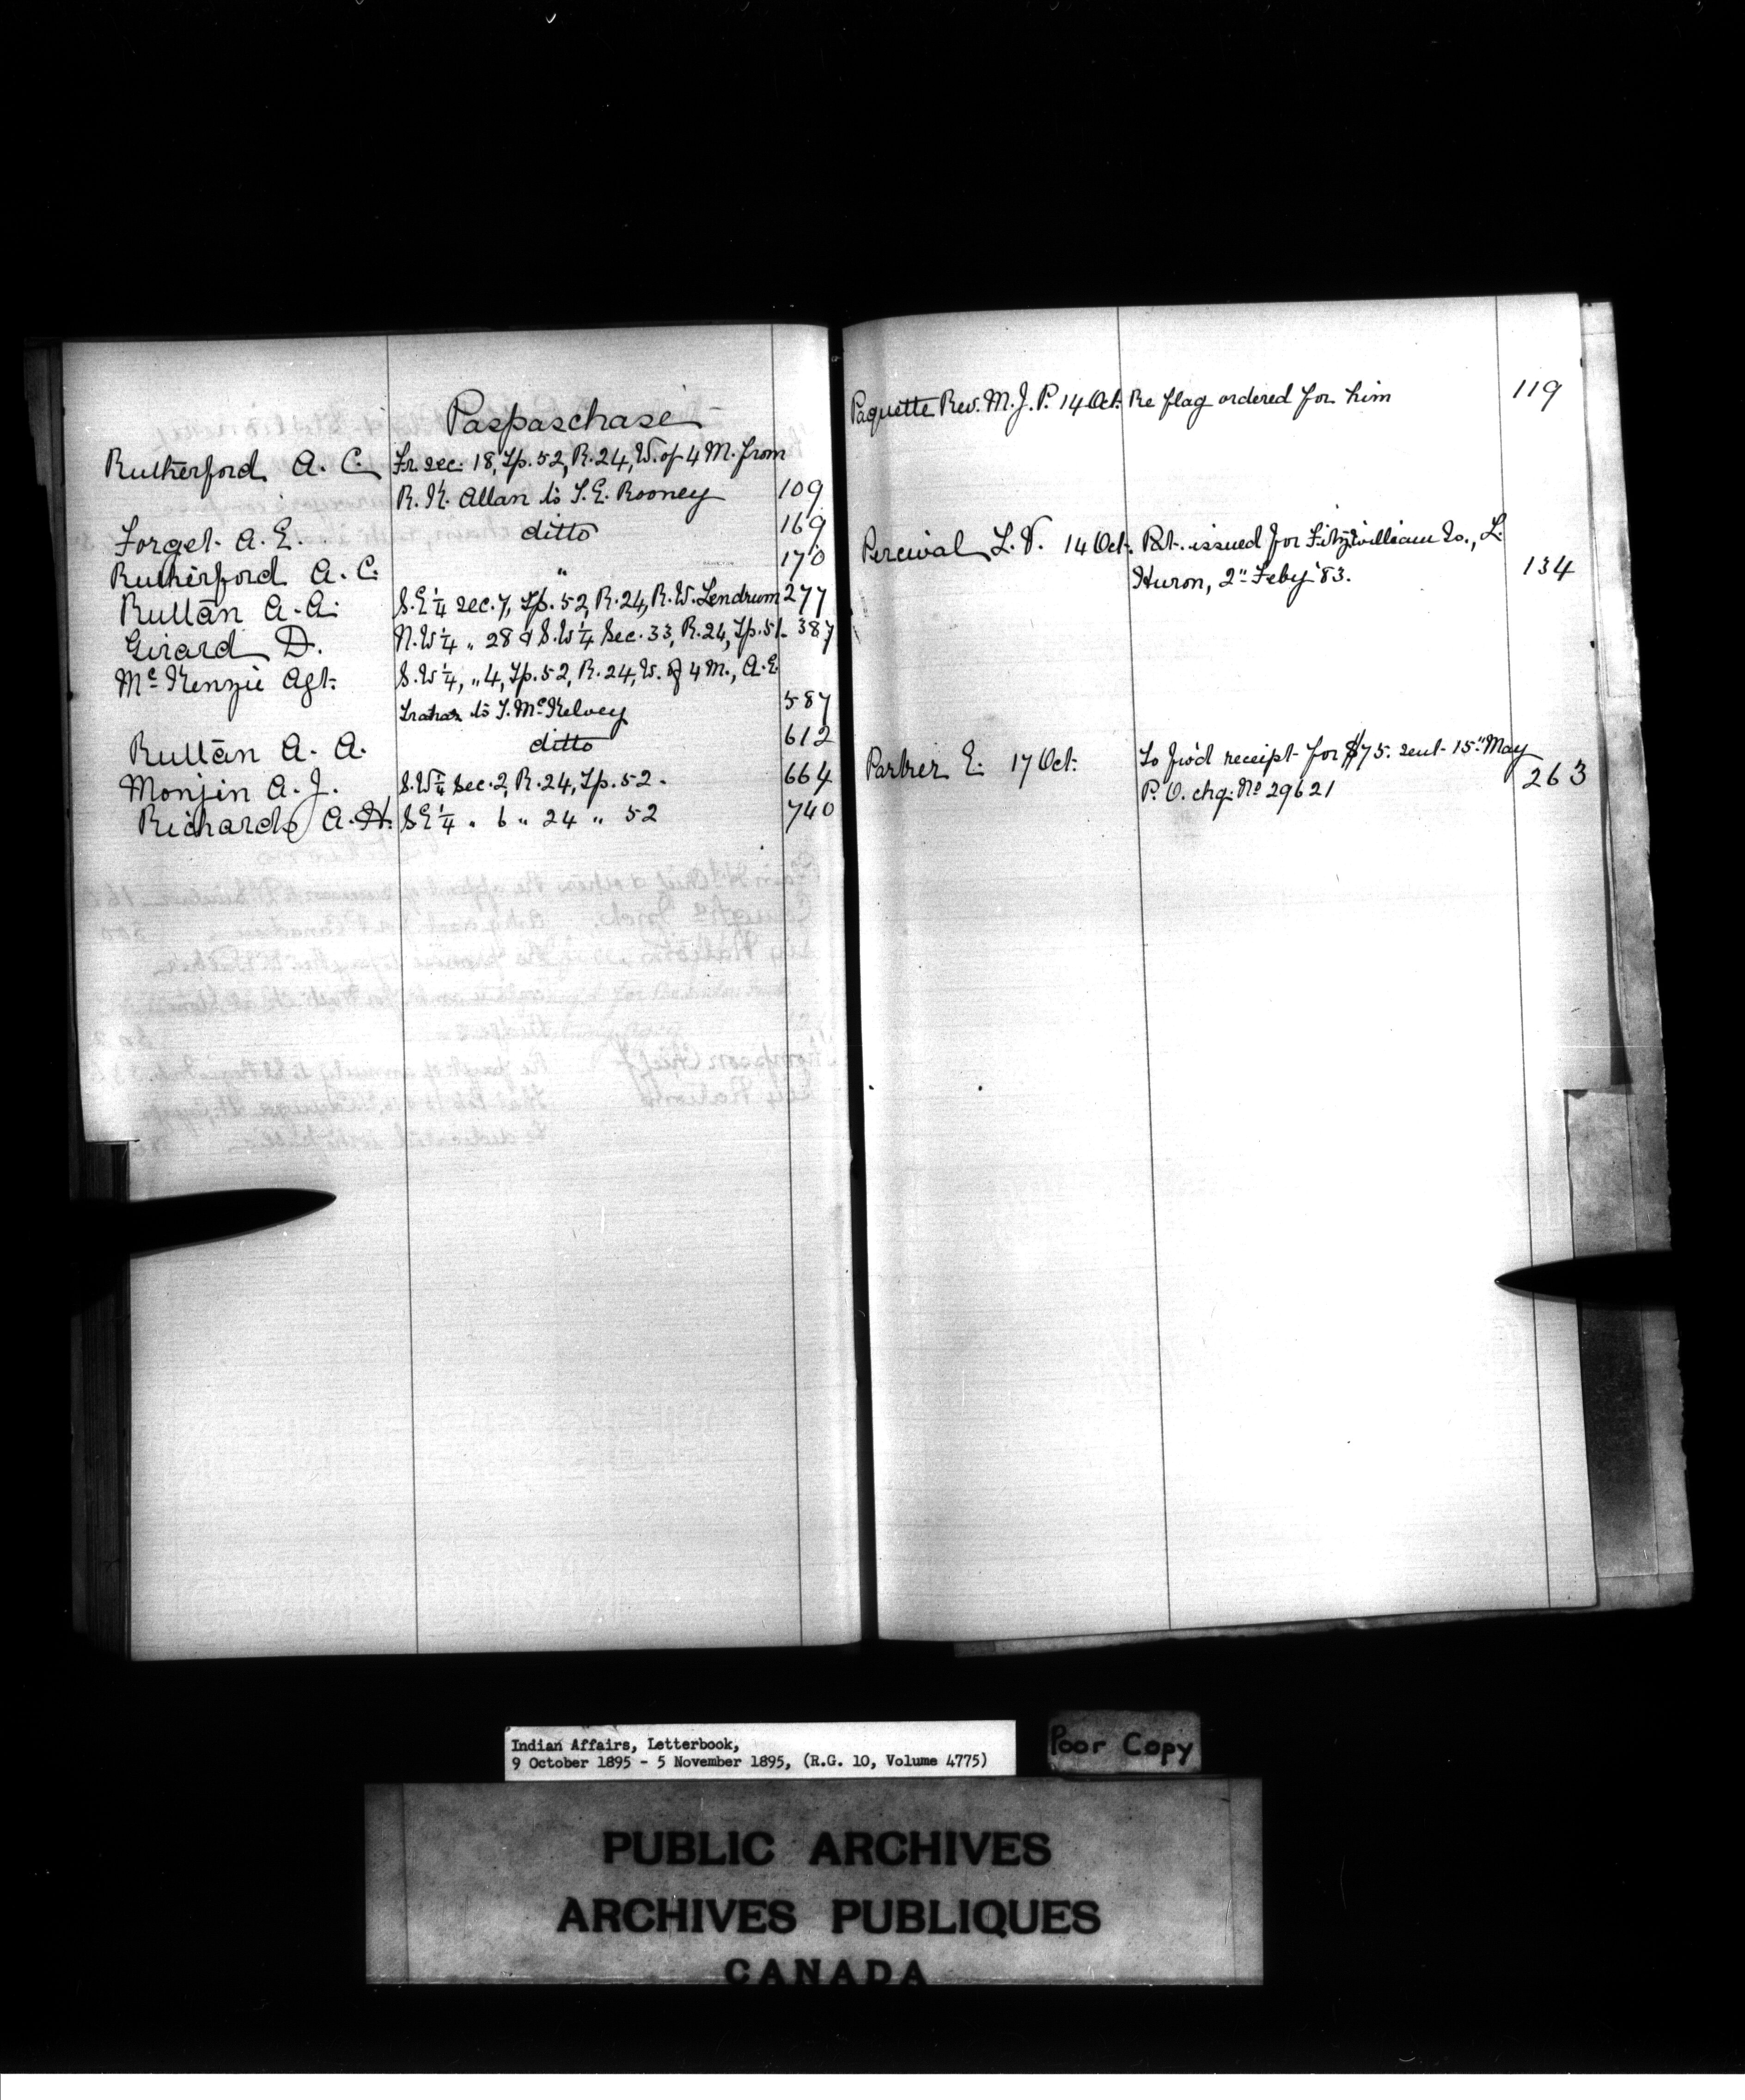 Paspaschase
Rutherford A. C. Fr. sec. 18, Tp. 52, R. 24, W. of 4 M. from
R. K. Allan to T. E. Rooney 109
Forget A. E. ditto 169
Rutherford A. C. " 170
Ruttan A. A. S.E 1/4 sec. 7, Tp. 52, R. 24, R. W. Lendrum 277
Girard D. N.W 1/4 " 28 & S.W 1/4 Sec. 33, R. 24, Tp. 51. 387
McKenzie Agt. S.W 1/4, " 4, Tp. 52, R. 24, W. of 4 M., A. E.
to T. McKelvey 587
Ruttan A. A. ditto 612
Monjin A. J. S.W 1/4 Sec. 2, R. 24, Tp. 52. 664
Richards A. H. S.E 1/4 " 6 " 24 " 52 740
Paquette Rev. M. J. P. 14 Oct. Re flag ordered for him 119
Percival L. V. 14 Oct. Pat. issued for Fitzwilliam Is., L.
Huron, 2" Feby '83. 134
Parker E. 17 Oct. To fw'd receipt for $75. sent 15" May
P. O. chq. No 29621 263
Indian Affairs, Letterbook,
9 October 1895 - 5 November 1895, (R.G. 10, Volume 4775)
Poor Copy
PUBLIC ARCHIVES
ARCHIVES PUBLIQUES
CANADA